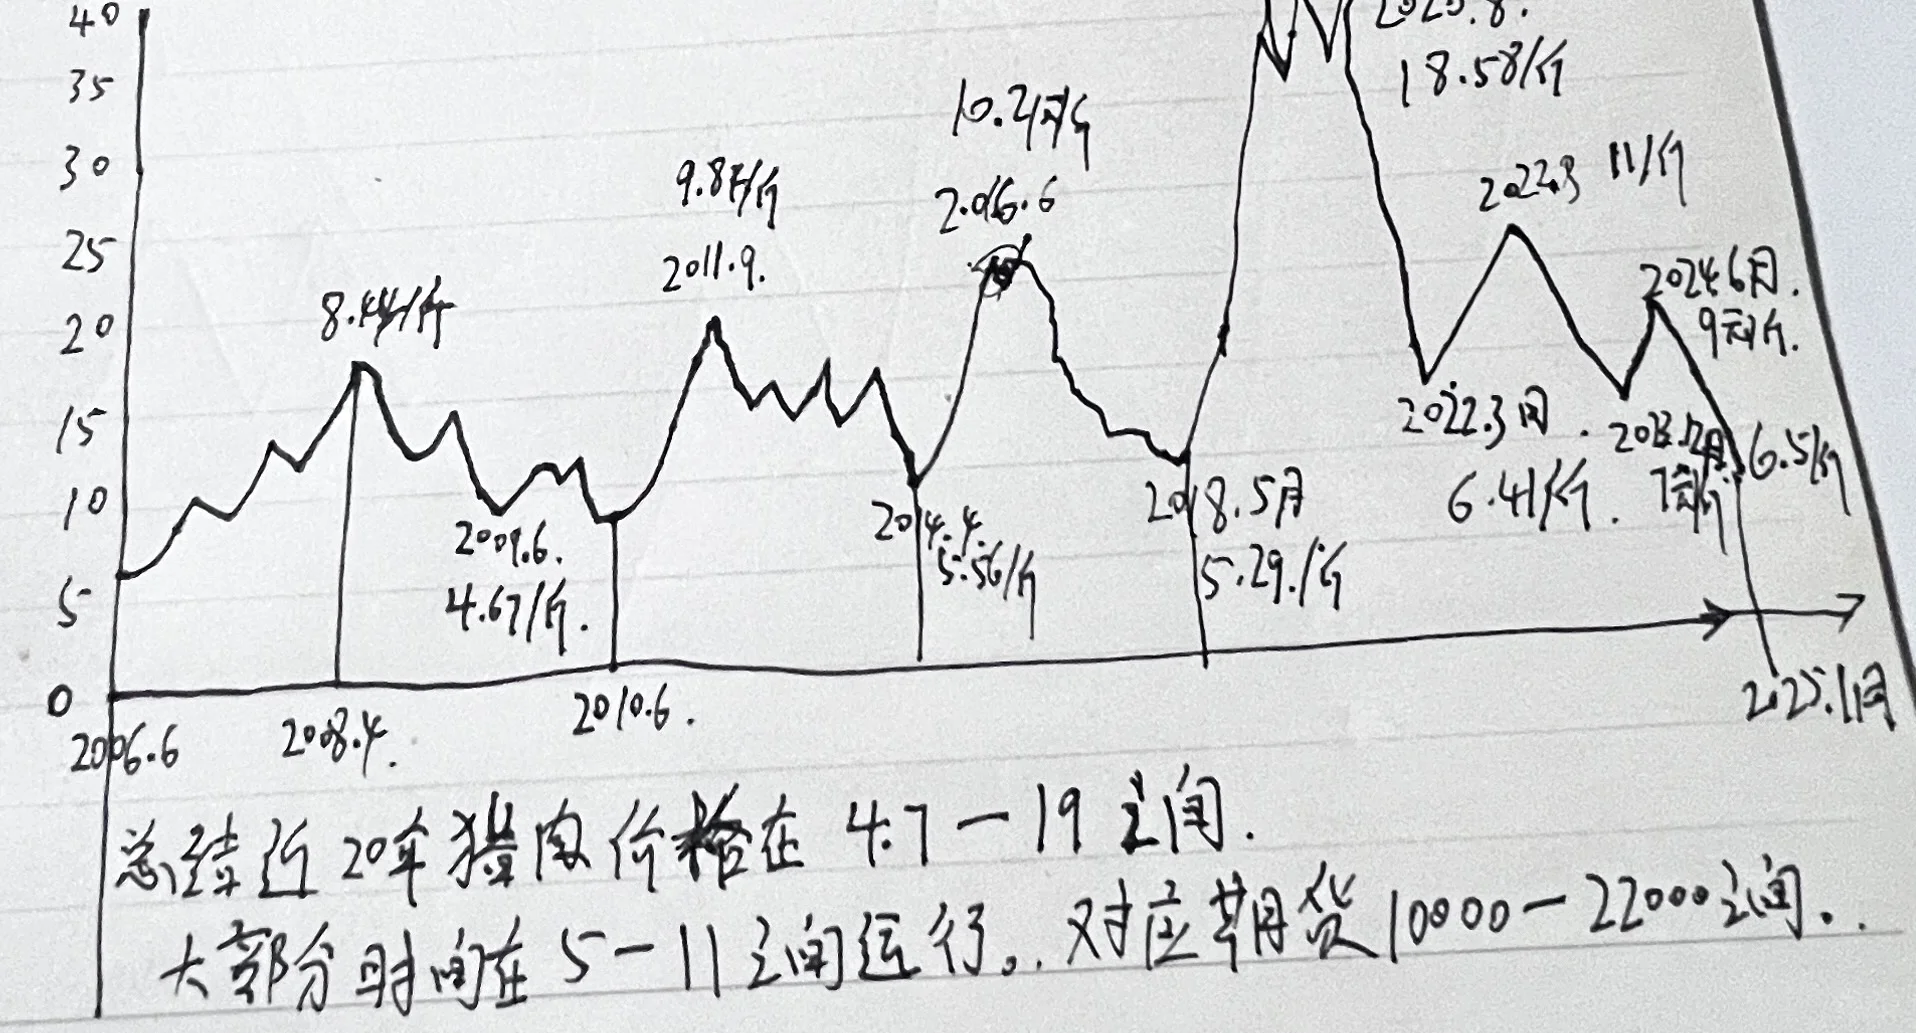 40
35
30
25
20
15
10
5
0
8.44/斤
9.8元/斤
2011.9.
10.2元/斤
2016.6
18.58/斤
2022.8 11/斤
2024.6月.
9元/斤.
2009.6.
4.67/斤.
2014.4.
5.56/斤
2018.5月
5.29./斤
2022.3月.
6.41/斤.
6.5/斤
2006.6
2008.4.
2010.6.
2025.1月
总结近20年猪肉价格在 4.7-19之间.
大部分时间在 5-11之间运行。. 对应期货10000-22000之间..